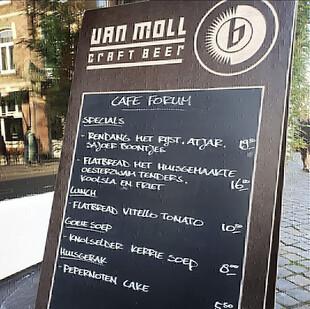 VAN MOLL
CRAFT BEER
b
CAFE FORUM
SPECIALS
- RENDANG MET RIJST, ATJAR,
SAJOER BOONTJES
- FLATBREAD MET HUISGEMAAKTE
OESTERZWAM TENDERS,
KOOLSLA EN FRIET
16.00
LUNCH
- FLATBREAD VITELLO TONATO
GOEIE SOEP
- KNOLSELDER KERRIE SOEP
8.00
HUISGEBAK
- PEPERNOTEN CAKE
5.50